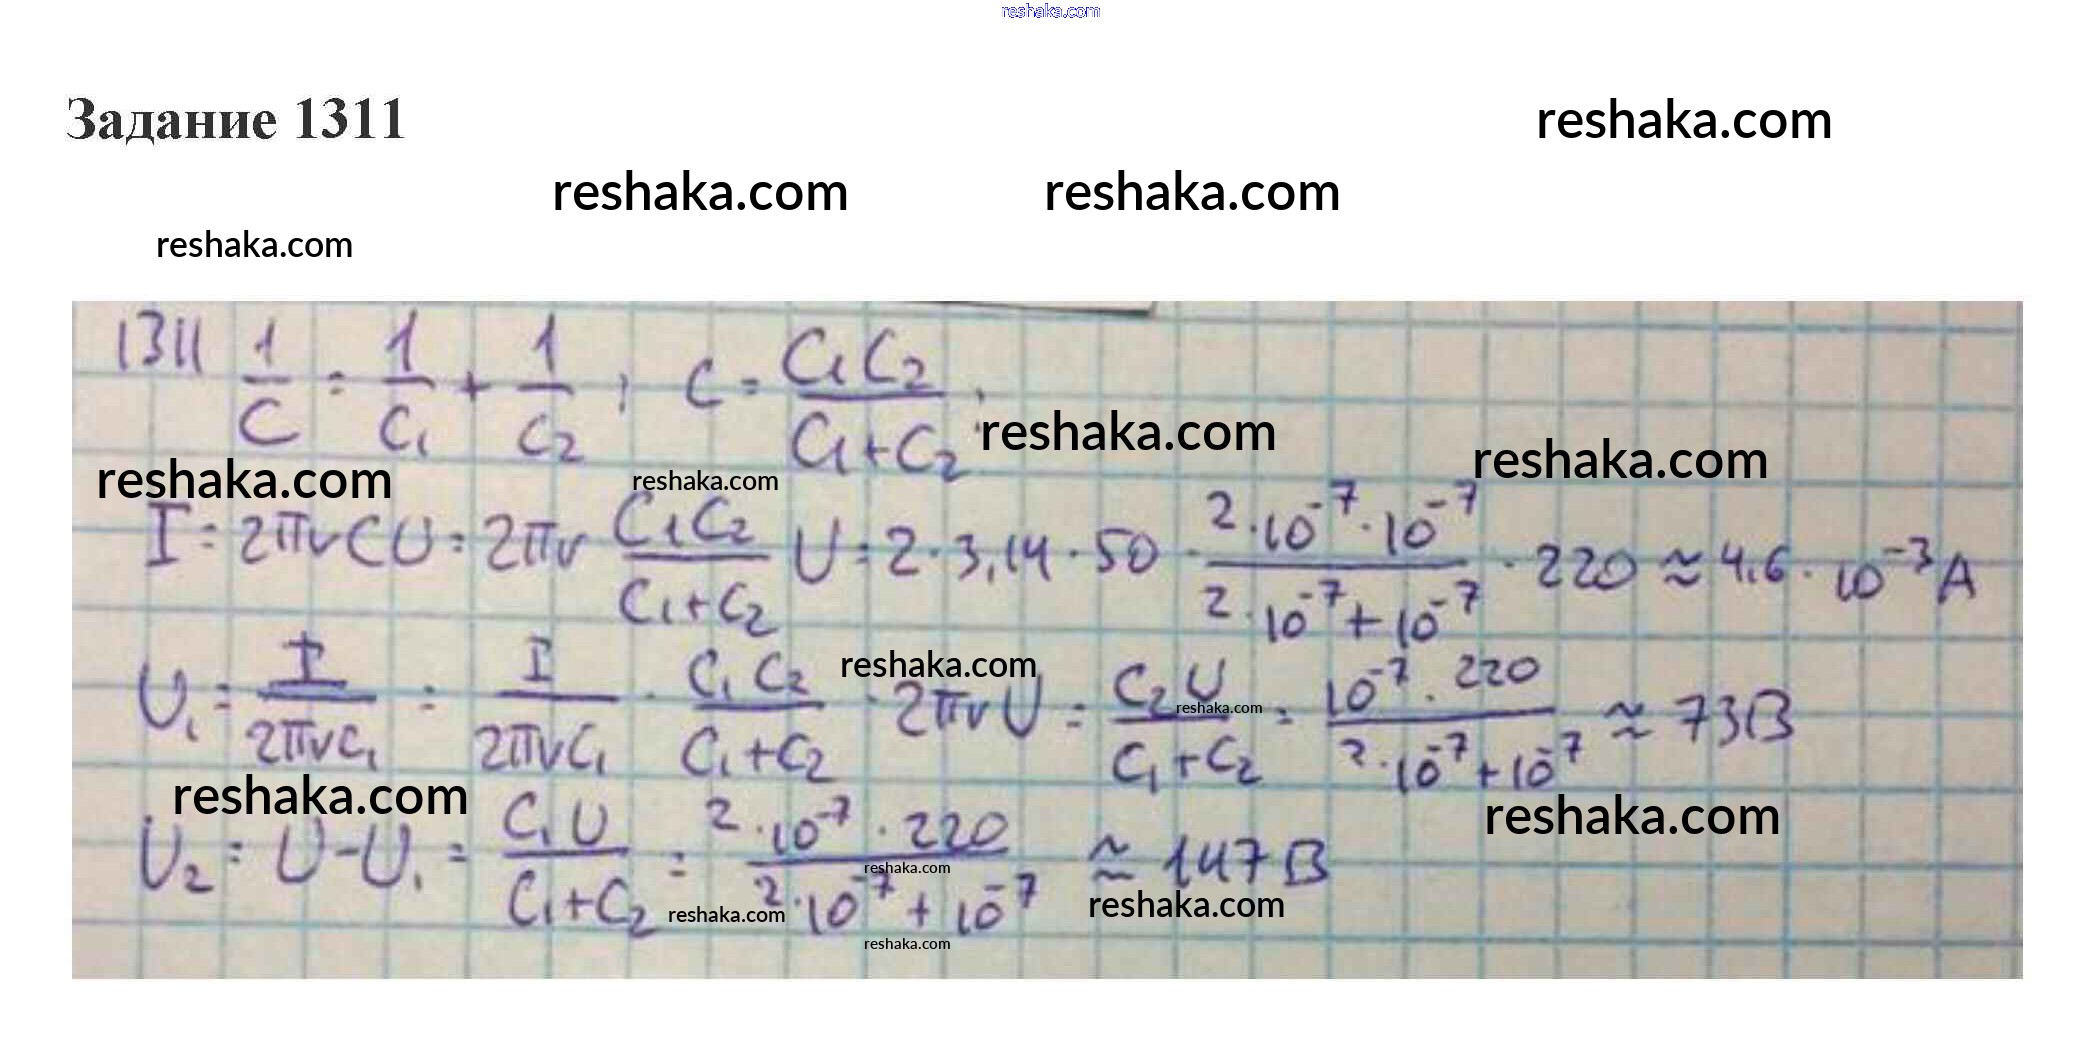 reshaka.com
Задание 1311
reshaka.com
reshaka.com reshaka.com
reshaka.com
1311 1/C = 1/C₁ + 1/C₂ ; C = C₁C₂/(C₁+C₂) ;
reshaka.com reshaka.com
reshaka.com reshaka.com
I = 2πνCU = 2πν C₁C₂/(C₁+C₂) U = 2·3,14·50 · 2·10⁻⁷·10⁻⁷/(2·10⁻⁷+10⁻⁷) · 220 ≈ 4,6·10⁻³A
reshaka.com
U₁ = I/(2πνC₁) = I/(2πνC₁) · C₁C₂/(C₁+C₂) · 2πνU = C₂U/(C₁+C₂) = 10⁻⁷·220/(2·10⁻⁷+10⁻⁷) ≈ 73В
reshaka.com
reshaka.com reshaka.com
U₂ = U-U₁ = C₁U/(C₁+C₂) = 2·10⁻⁷·220/(2·10⁻⁷+10⁻⁷) ≈ 147В
reshaka.com
reshaka.com reshaka.com
reshaka.com